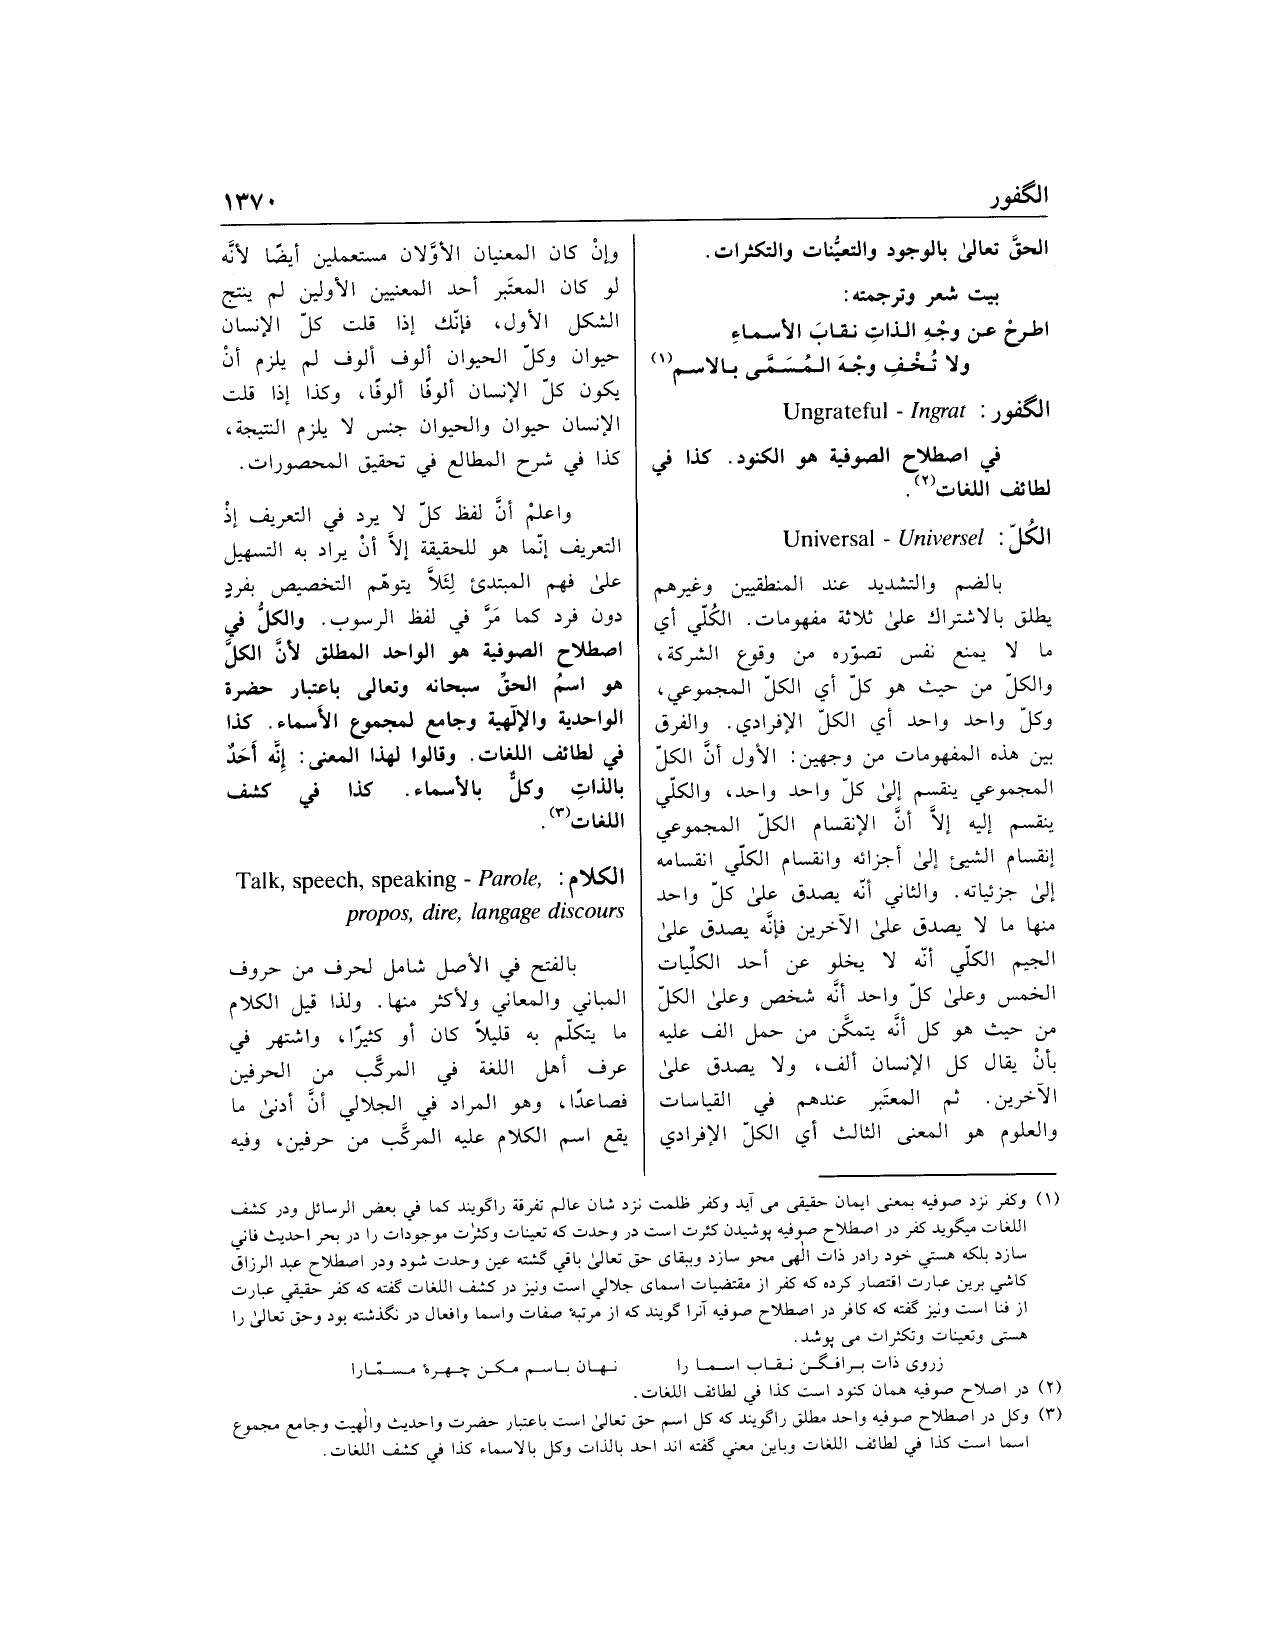 الكفور
١٣٧٠
الحقَّ تعالىٰ بالوجود والتعيُّنات والتكثرات.
بيت شعر وترجمته:
اطرحْ عـن وجْهِ الـذاتِ نـقابَ الأسمـاءِ
ولا تُـخْـفِ وجْـهَ الـمُسَـمَّـى بـالاسـم(١)
الكفور: Ungrateful - Ingrat
في اصطلاح الصوفية هو الكنود. كذا في
لطائف اللغات(٢).
الكُلّ: Universal - Universel
بالضم والتشديد عند المنطقيين وغيرهم
يطلق بالاشتراك علىٰ ثلاثة مفهومات. الكُلّي أي
ما لا يمنع نفس تصوّره من وقوع الشركة،
والكلّ من حيث هو كلّ أي الكلّ المجموعي،
وكلّ واحد واحد أي الكلّ الإفرادي. والفرق
بين هذه المفهومات من وجهين: الأول أنَّ الكلّ
المجموعي ينقسم إلىٰ كلّ واحد واحد، والكلّي
ينقسم إليه إلاَّ أنَّ الإنقسام الكلّ المجموعي
إنقسام الشيئ إلىٰ أجزائه وانقسام الكلّي انقسامه
إلىٰ جزئياته. والثاني أنّه يصدق علىٰ كلّ واحد
منها ما لا يصدق علىٰ الآخرين فإنَّه يصدق علىٰ
الجيم الكلّي أنّه لا يخلو عن أحد الكلِّيات
الخمس وعلىٰ كلّ واحد أنَّه شخص وعلىٰ الكلّ
من حيث هو كل أنَّه يتمكَّن من حمل الف عليه
بأنْ يقال كل الإنسان ألف، ولا يصدق علىٰ
الآخرين. ثم المعتَبر عندهم في القياسات
والعلوم هو المعنى الثالث أي الكلّ الإفرادي
وإنْ كان المعنيان الأوَّلان مستعملين أيضًا لأنَّه
لو كان المعتَبر أحد المعنيين الأولين لم ينتج
الشكل الأول، فإنّك إذا قلت كلّ الإنسان
حيوان وكلّ الحيوان ألوف ألوف لم يلزم أنْ
يكون كلّ الإنسان ألوفًا ألوفًا، وكذا إذا قلت
الإنسان حيوان والحيوان جنس لا يلزم النتيجة،
كذا في شرح المطالع في تحقيق المحصورات.
واعلمْ أنَّ لفظ كلّ لا يرد في التعريف إذْ
التعريف إنّما هو للحقيقة إلاَّ أنْ يراد به التسهيل
علىٰ فهم المبتدئ لِئَلاَّ يتوهّم التخصيص بفردٍ
دون فرد كما مَرَّ في لفظ الرسوب. والكلُّ في
اصطلاح الصوفية هو الواحد المطلق لأنَّ الكلَّ
هو اسمُ الحقِّ سبحانه وتعالى باعتبار حضرة
الواحدية والإلٓهية وجامع لمجموع الأسماء. كذا
في لطائف اللغات. وقالوا لهذا المعنى: إنَّه أَحَدٌ
بالذاتِ وكلٌّ بالأسماء. كذا في كشف
اللغات(٣).
الكلام: Talk, speech, speaking - Parole,
propos, dire, langage discours
بالفتح في الأصل شامل لحرف من حروف
المباني والمعاني ولأكثر منها. ولذا قيل الكلام
ما يتكلّم به قليلاً كان أو كثيرًا، واشتهر في
عرف أهل اللغة في المركَّب من الحرفين
فصاعدًا، وهو المراد في الجلالي أنَّ أدنىٰ ما
يقع اسم الكلام عليه المركَّب من حرفين، وفيه
(١) وكفر نزد صوفيه بمعنى ايمان حقيقى مى آيد وكفر ظلمت نزد شان عالم تفرقة راگويند كما في بعض الرسائل ودر كشف
اللغات ميگويد كفر در اصطلاح صوفيه پوشيدن كثرت است در وحدت كه تعينات وكثرٰت موجودات را در بحر احديث فاني
سازد بلكه هستي خود رادر ذات الٰهى محو سازد وببقاى حق تعالىٰ باقي گشته عين وحدت شود ودر اصطلاح عبد الرزاق
كاشي برين عبارت اقتصار كرده كه كفر از مقتضيات اسماى جلالي است ونيز در كشف اللغات گفته كه كفر حقيقي عبارت
از فنا است ونيز گفته كه كافر در اصطلاح صوفيه آنرا گويند كه از مرتبهٔ صفات واسما وافعال در نگذشته بود وحق تعالىٰ را
هستى وتعينات وتكثرات مى پوشد.
زروى ذات بـرافـگـن نـقـاب اسـمـا را نـهـان بـاسـم مـكـن چـهـرهٔ مـسـمّـارا
(٢) در اصلاح صوفيه همان كنود است كذا في لطائف اللغات.
(٣) وكل در اصطلاح صوفيه واحد مطلق راگويند كه كل اسم حق تعالىٰ است باعتبار حضرت واحديث والٰهيت وجامع مجموع
اسما است كذا في لطائف اللغات وباين معني گفته اند احد بالذات وكل بالاسماء كذا في كشف اللغات.